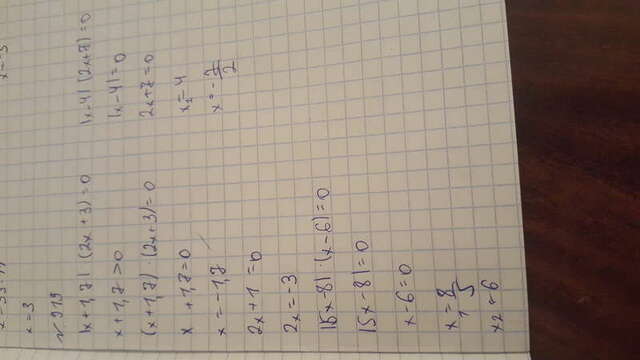 x = 3
№ 919
|x + 1,7| · (2x + 3) = 0
x + 1,7 > 0
(x + 1,7) · (2x + 3) = 0
x + 1,7 = 0
x = -1,7
2x + 1 = 0
2x = -3
|5x - 8| · (x - 6) = 0
|5x - 8| = 0
x - 6 = 0
x₁ = 8/5
x₂ = 6
|x - 4| (2x + 7) = 0
|x - 4| = 0
2x + 7 = 0
x₁ = 4
x = -7/2